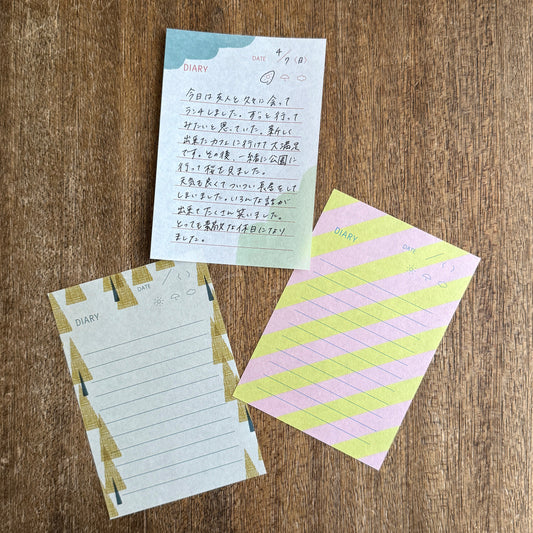 DIARY
DATE 4/7 (日)
今日は友人と久々に会って
ランチしました。ずっと行って
みたいと思っていた、新しく
出来たカフェに行けて大満足
です。その後、一緒に公園に
行って桜を見ました。
天気も良くてついつい長居をして
しまいました。いろんな話が
出来てたくさん笑いました。
とっても素敵な休日になり
ました。
DIARY
DATE / ( )
DIARY
DATE / ( )